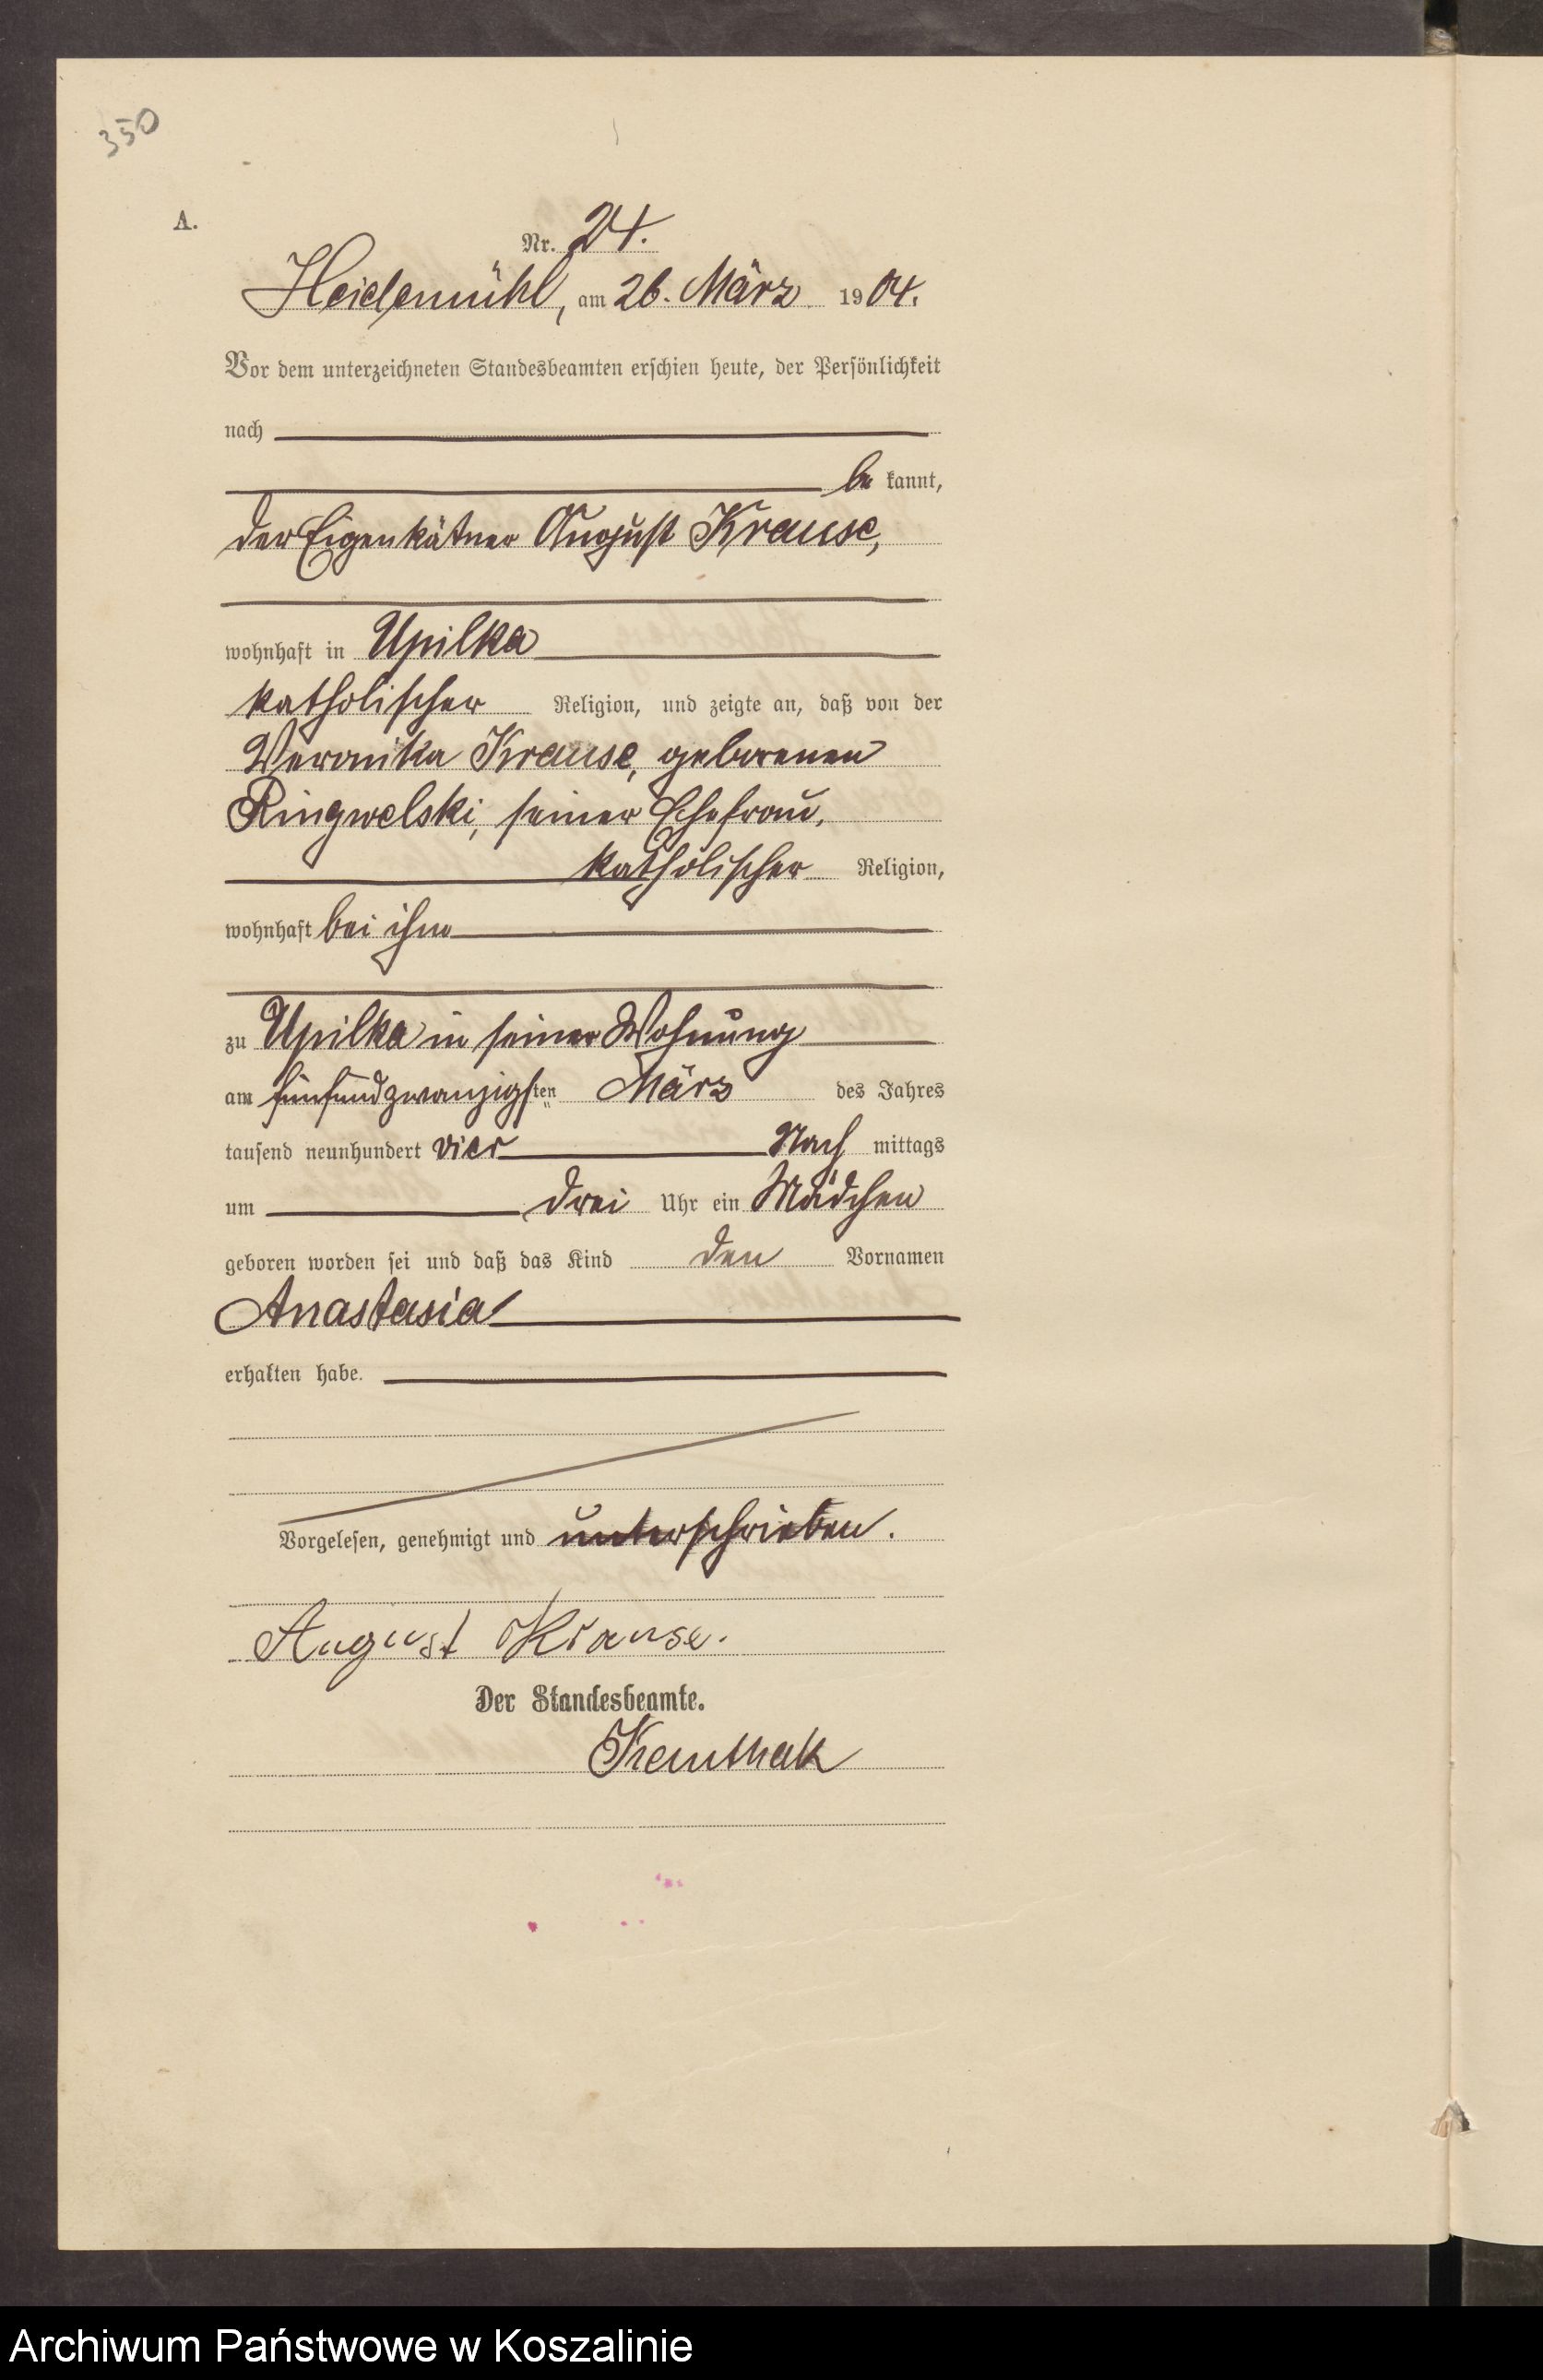 350
A.
Nr. 24.
Heidemühl, am 26. März 1904.
Vor dem unterzeichneten Standesbeamten erschien heute, der Persönlichkeit
nach
be kannt,
der Eigenkätner August Krause,
wohnhaft in Upilka
katholischer Religion, und zeigte an, daß von der
Veronika Krause, geborenen
Ringwelski, seiner Ehefrau,
katholischer Religion,
wohnhaft bei ihm
zu Upilka in seiner Wohnung
am fünfundzwanzigsten März des Jahres
tausend neunhundert vier Nach mittags
um drei Uhr ein Mädchen
geboren worden sei und daß das Kind den Vornamen
Anastasia
erhalten habe.
Vorgelesen, genehmigt und unterschrieben.
August Krause.
Der Standesbeamte.
Archiwum Państwowe w Koszalinie